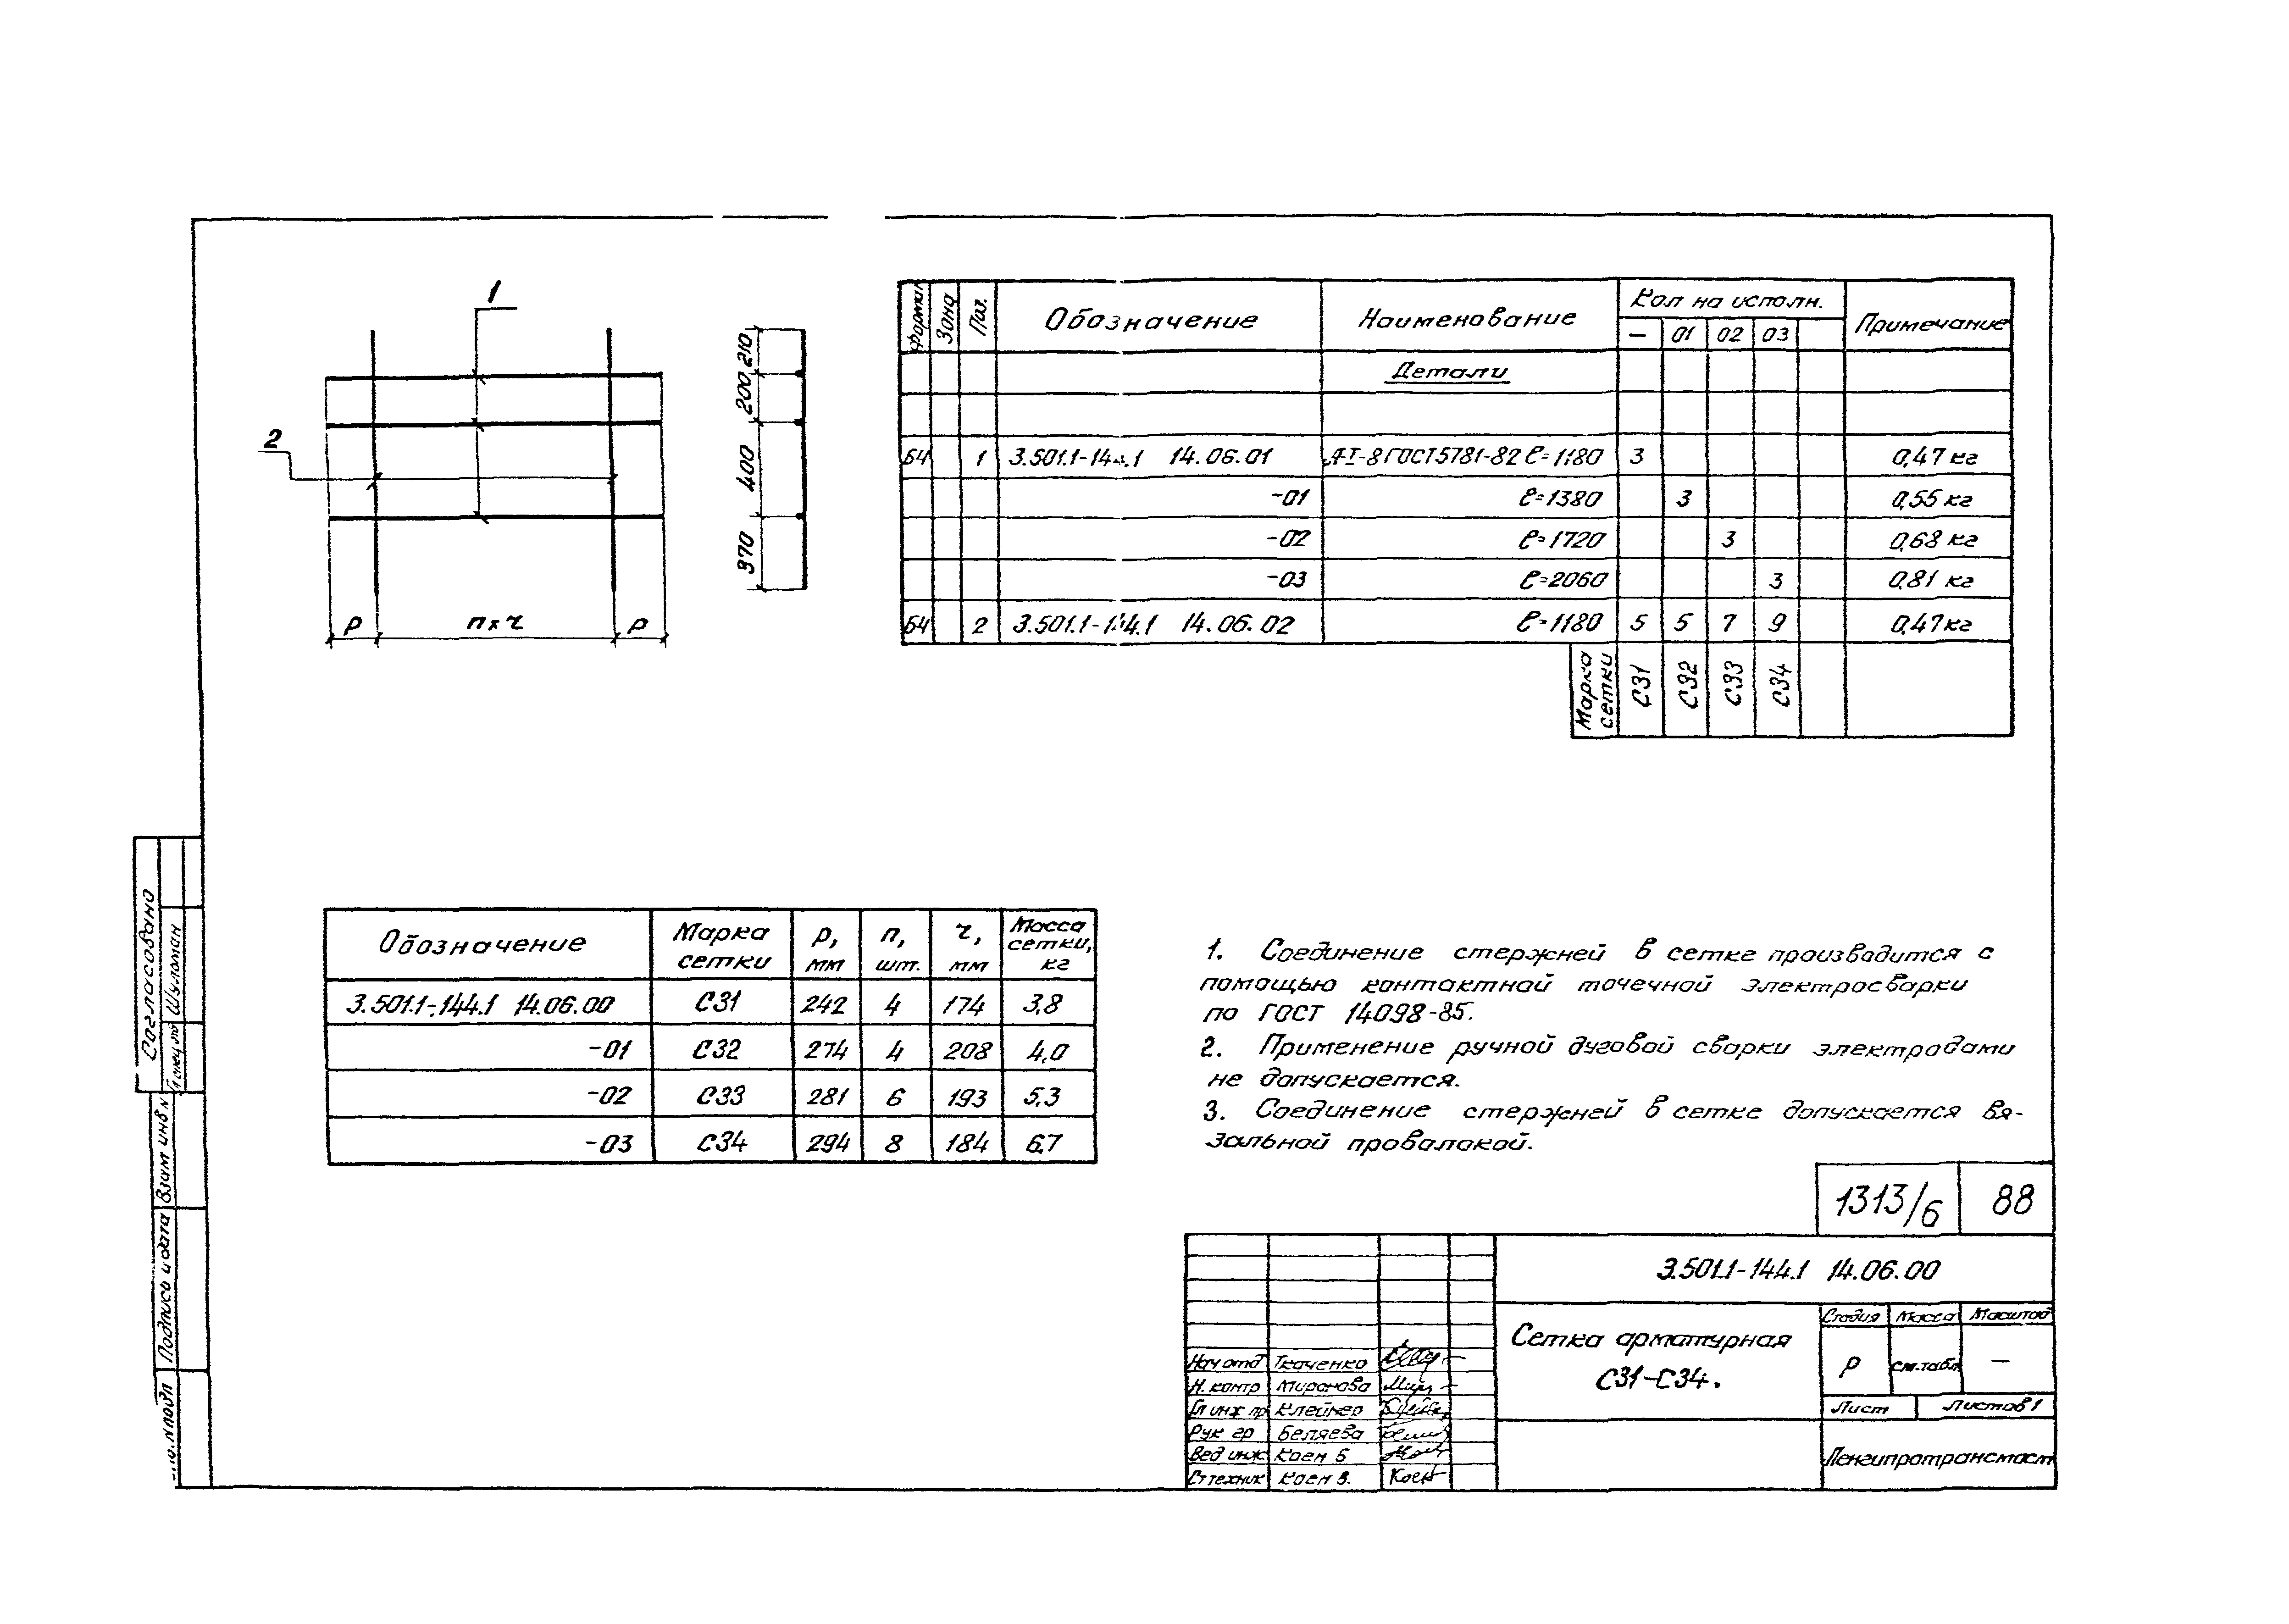 1
2
210
200
400
370
р
п×ч
р
Формат
Зона
Поз.
Обозначение
Наименование
Кол на исполн.
Примечание
– 01 02 03
Детали
Б4 1 3.501.1-144.1 14.06.01 А-I-8 ГОСТ 5781-82 ℓ=1180 3 0,47 кг
-01 ℓ=1380 3 0,55 кг
-02 ℓ=1720 3 0,68 кг
-03 ℓ=2060 3 0,81 кг
Б4 2 3.501.1-144.1 14.06.02 ℓ=1180 5 5 7 9 0,47 кг
Марка сетки С31 С32 С33 С34
Обозначение Марка сетки р, мм п, шт. ч, мм Масса сетки, кг
3.501.1-144.1 14.06.00 С31 242 4 174 3,8
-01 С32 274 4 208 4,0
-02 С33 281 6 193 5,3
-03 С34 294 8 184 6,7
1. Соединение стержней в сетке производится с
помощью контактной точечной электросварки
по ГОСТ 14098-85.
2. Применение ручной дуговой сварки электродами
не допускается.
3. Соединение стержней в сетке допускается вя-
зальной проволокой.
1313/6 88
3.501.1-144.1 14.06.00
Сетка арматурная
С31-С34.
Стадия Масса Масштаб
Р см.табл. –
Лист Листов 1
Ленгипротрансмост
Нач отд Ткаченко
Н. контр Миронова
Гл инж пр Клейнер
Рук гр Беляева
Вед инж Коен Б
Ст техник Коен В. Коен
Согласовано
Гл спец по Шульман
Взам инв N
Подпись и дата
Инв. N подл